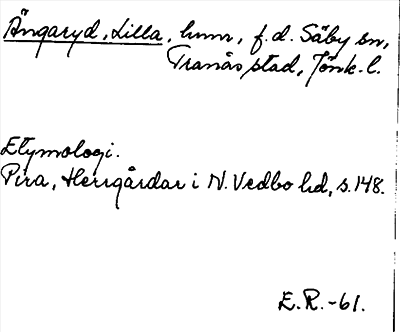 Ängaryd, Lilla, hmn, f.d. Säby sn,
Tranås stad, Jönk. l.
Etymologi.
Pira, Herrgårdar i N. Vedbo hd, s. 148.
E.R. -61.